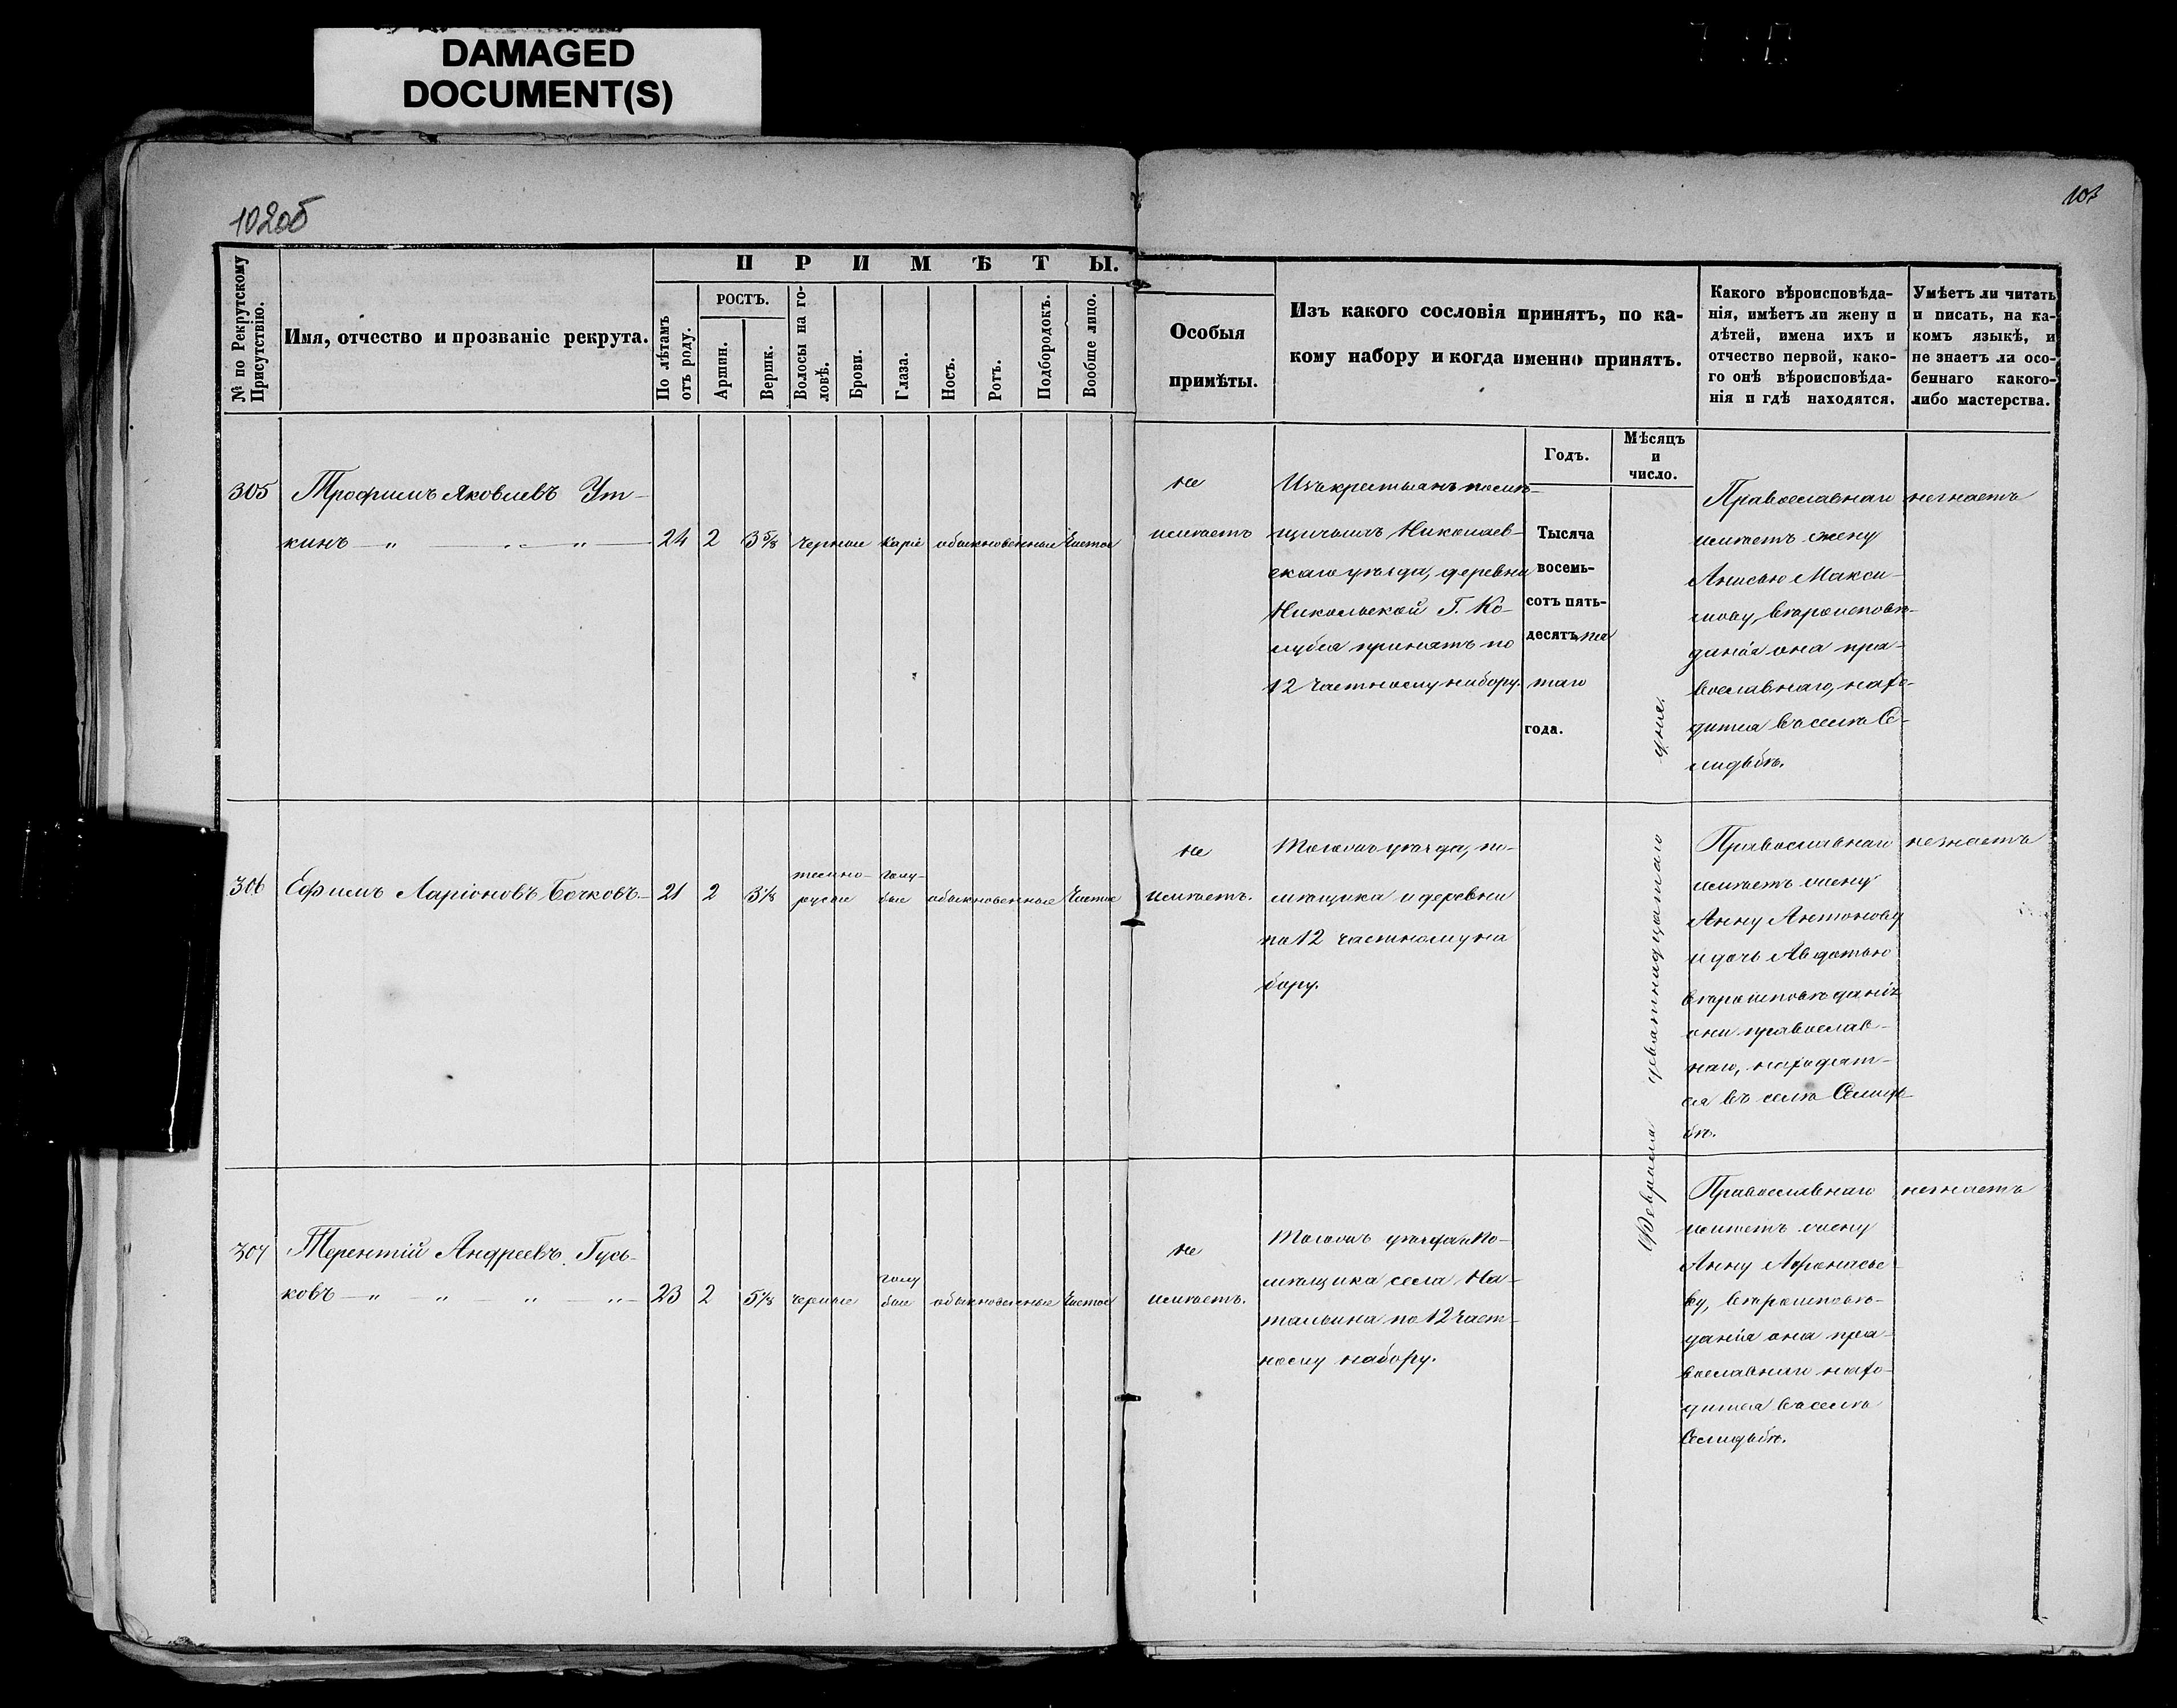 DAMAGED
DOCUMENT(S)
102об
103
№ по Рекрутскому
Присутствію.
Имя, отчество и прозваніе рекрута.
ПРИМѢТЫ.
По лѣтамъ
отъ роду.
РОСТЪ.
Аршин.
Вершк.
Волосы на го-
ловѣ.
Брови.
Глаза.
Носъ.
Ротъ.
Подбородокъ.
Вообще лицо.
Особыя
примѣты.
Изъ какого сословія принятъ, по ка-
кому набору и когда именно принятъ.
Какого вѣроисповѣда-
нія, имѣетъ ли жену и
дѣтей, имена ихъ и
отчество первой, како-
го онѣ вѣроисповѣда-
нія и гдѣ находятся.
Умѣетъ ли читать
и писать, на ка-
комъ языкѣ, и
не знаетъ ли осо-
беннаго какого-
либо мастерства.
Годъ.
Мѣсяцъ
и
число.
305
Трофимъ Яковлевъ Ут-
кинъ — „ — „ — „ —
24
2
3 5/8
черные
карiе
обыкновенные
Чистое
не
имѣетъ
Изъ крестьянъ помѣ-
щичьихъ Николаев-
скаго уѣзда, деревни
Никольской Г. Ко-
лубея принятъ по
12 частному набору.
Тысяча
восемь-
сотъ пять-
десятъ пя
таго
года.
Февраля девятнадцатаго дня.
Православнаго
имѣетъ жену
Анисью Макси-
мову, вѣроисповѣ-
данія она пра-
вославнаго, нахо-
дится въ селѣ Се-
лидьбѣ.
незнаетъ
306
Ефимъ Ларіоновъ Бочковъ.—
21
2
3 1/8
темно-
русые
голу-
бые
обыкновенные
Чистое
не
имѣетъ.
Тогожъ уѣзда, по-
мѣщика и деревни
по 12 частному на
бору.
Православнаго
имѣетъ жену
Анну Антонову
и дочь Авдотью
вѣроисповѣданія
они православ-
наго, находят-
ся въ селѣ Селидь-
бѣ.
незнаетъ
307
Терентій Андреевъ Гусь-
ковъ — „ — „ — „ — „ —
23
2
5 1/8
черные
голу
бые
обыкновенные
Чистое
не
имѣетъ.
Тогожъ уѣзда и по-
мѣщика села На-
тальина по 12 част-
ному набору.
Православнаго
имѣетъ жену
Анну Афонасье
ву, вѣроисповѣ-
данія она пра-
вославнаго нахо-
дится въ селѣ
Селидьбѣ.
незнаетъ